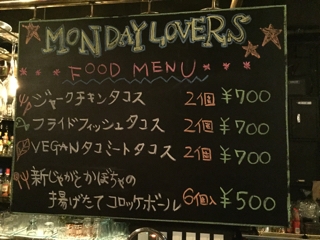 MONDAY LOVERS
FOOD MENU
ジャークチキンタコス 2個 ¥700
フライドフィッシュタコス 2個 ¥700
VEGANタコミートタコス 2個 ¥700
新じゃがとかぼちゃの
揚げたてコロッケボール 6個入 ¥500